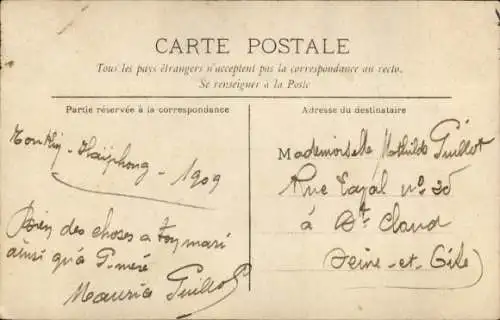 CARTE POSTALE
Tous les pays étrangers n'acceptent pas la correspondance au recto.
Se renseigner à la Poste
Partie réservée à la correspondance
Adresse du destinataire
Haïphong - 1909
Bien des choses a ton mari
ainsi qu'à G. mère
Maurice Guillot
Mademoiselle Mathilde Guillot
Rue n°
à St Cloud
Seine-et-Oise)